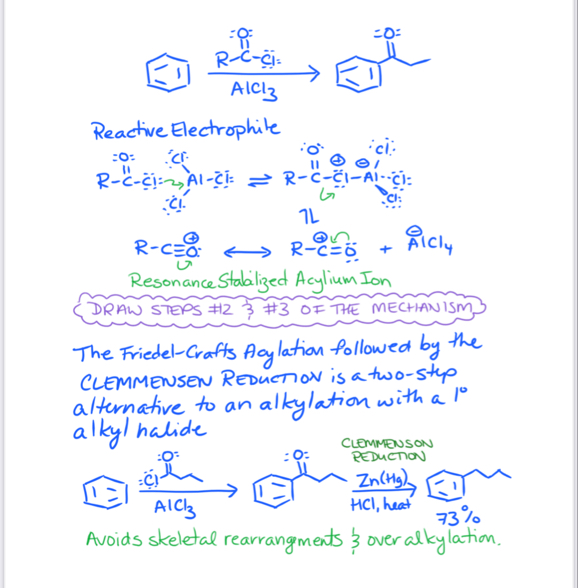 :O:
R-C-Cl:
:O:
AlCl3
Reactive Electrophile
:O: :Cl: :O: :Cl:
R-C-Cl: Al-Cl: ⇌ R-C-Cl-Al-Cl: ⊕ ⊖
:Cl: :Cl:
R-C≡O: ⊕ ↔ R-C=O ⊕ + AlCl4
Resonance Stabilized Acylium Ion
DRAW STEPS #2 & #3 OF THE MECHANISM
The Friedel-Crafts Acylation followed by the
CLEMMENSEN REDUCTION is a two-step
alternative to an alkylation with a 1°
alkyl halide
CLEMMENSON
REDUCTION
:O: :O:
:Cl Zn(Hg)
AlCl3 HCl, heat
73%
Avoids skeletal rearrangments & over alkylation.